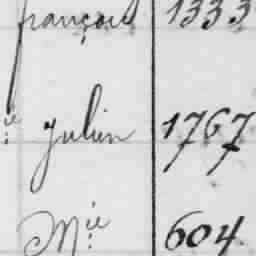 françois 1333
julien 1767
M^ie 604